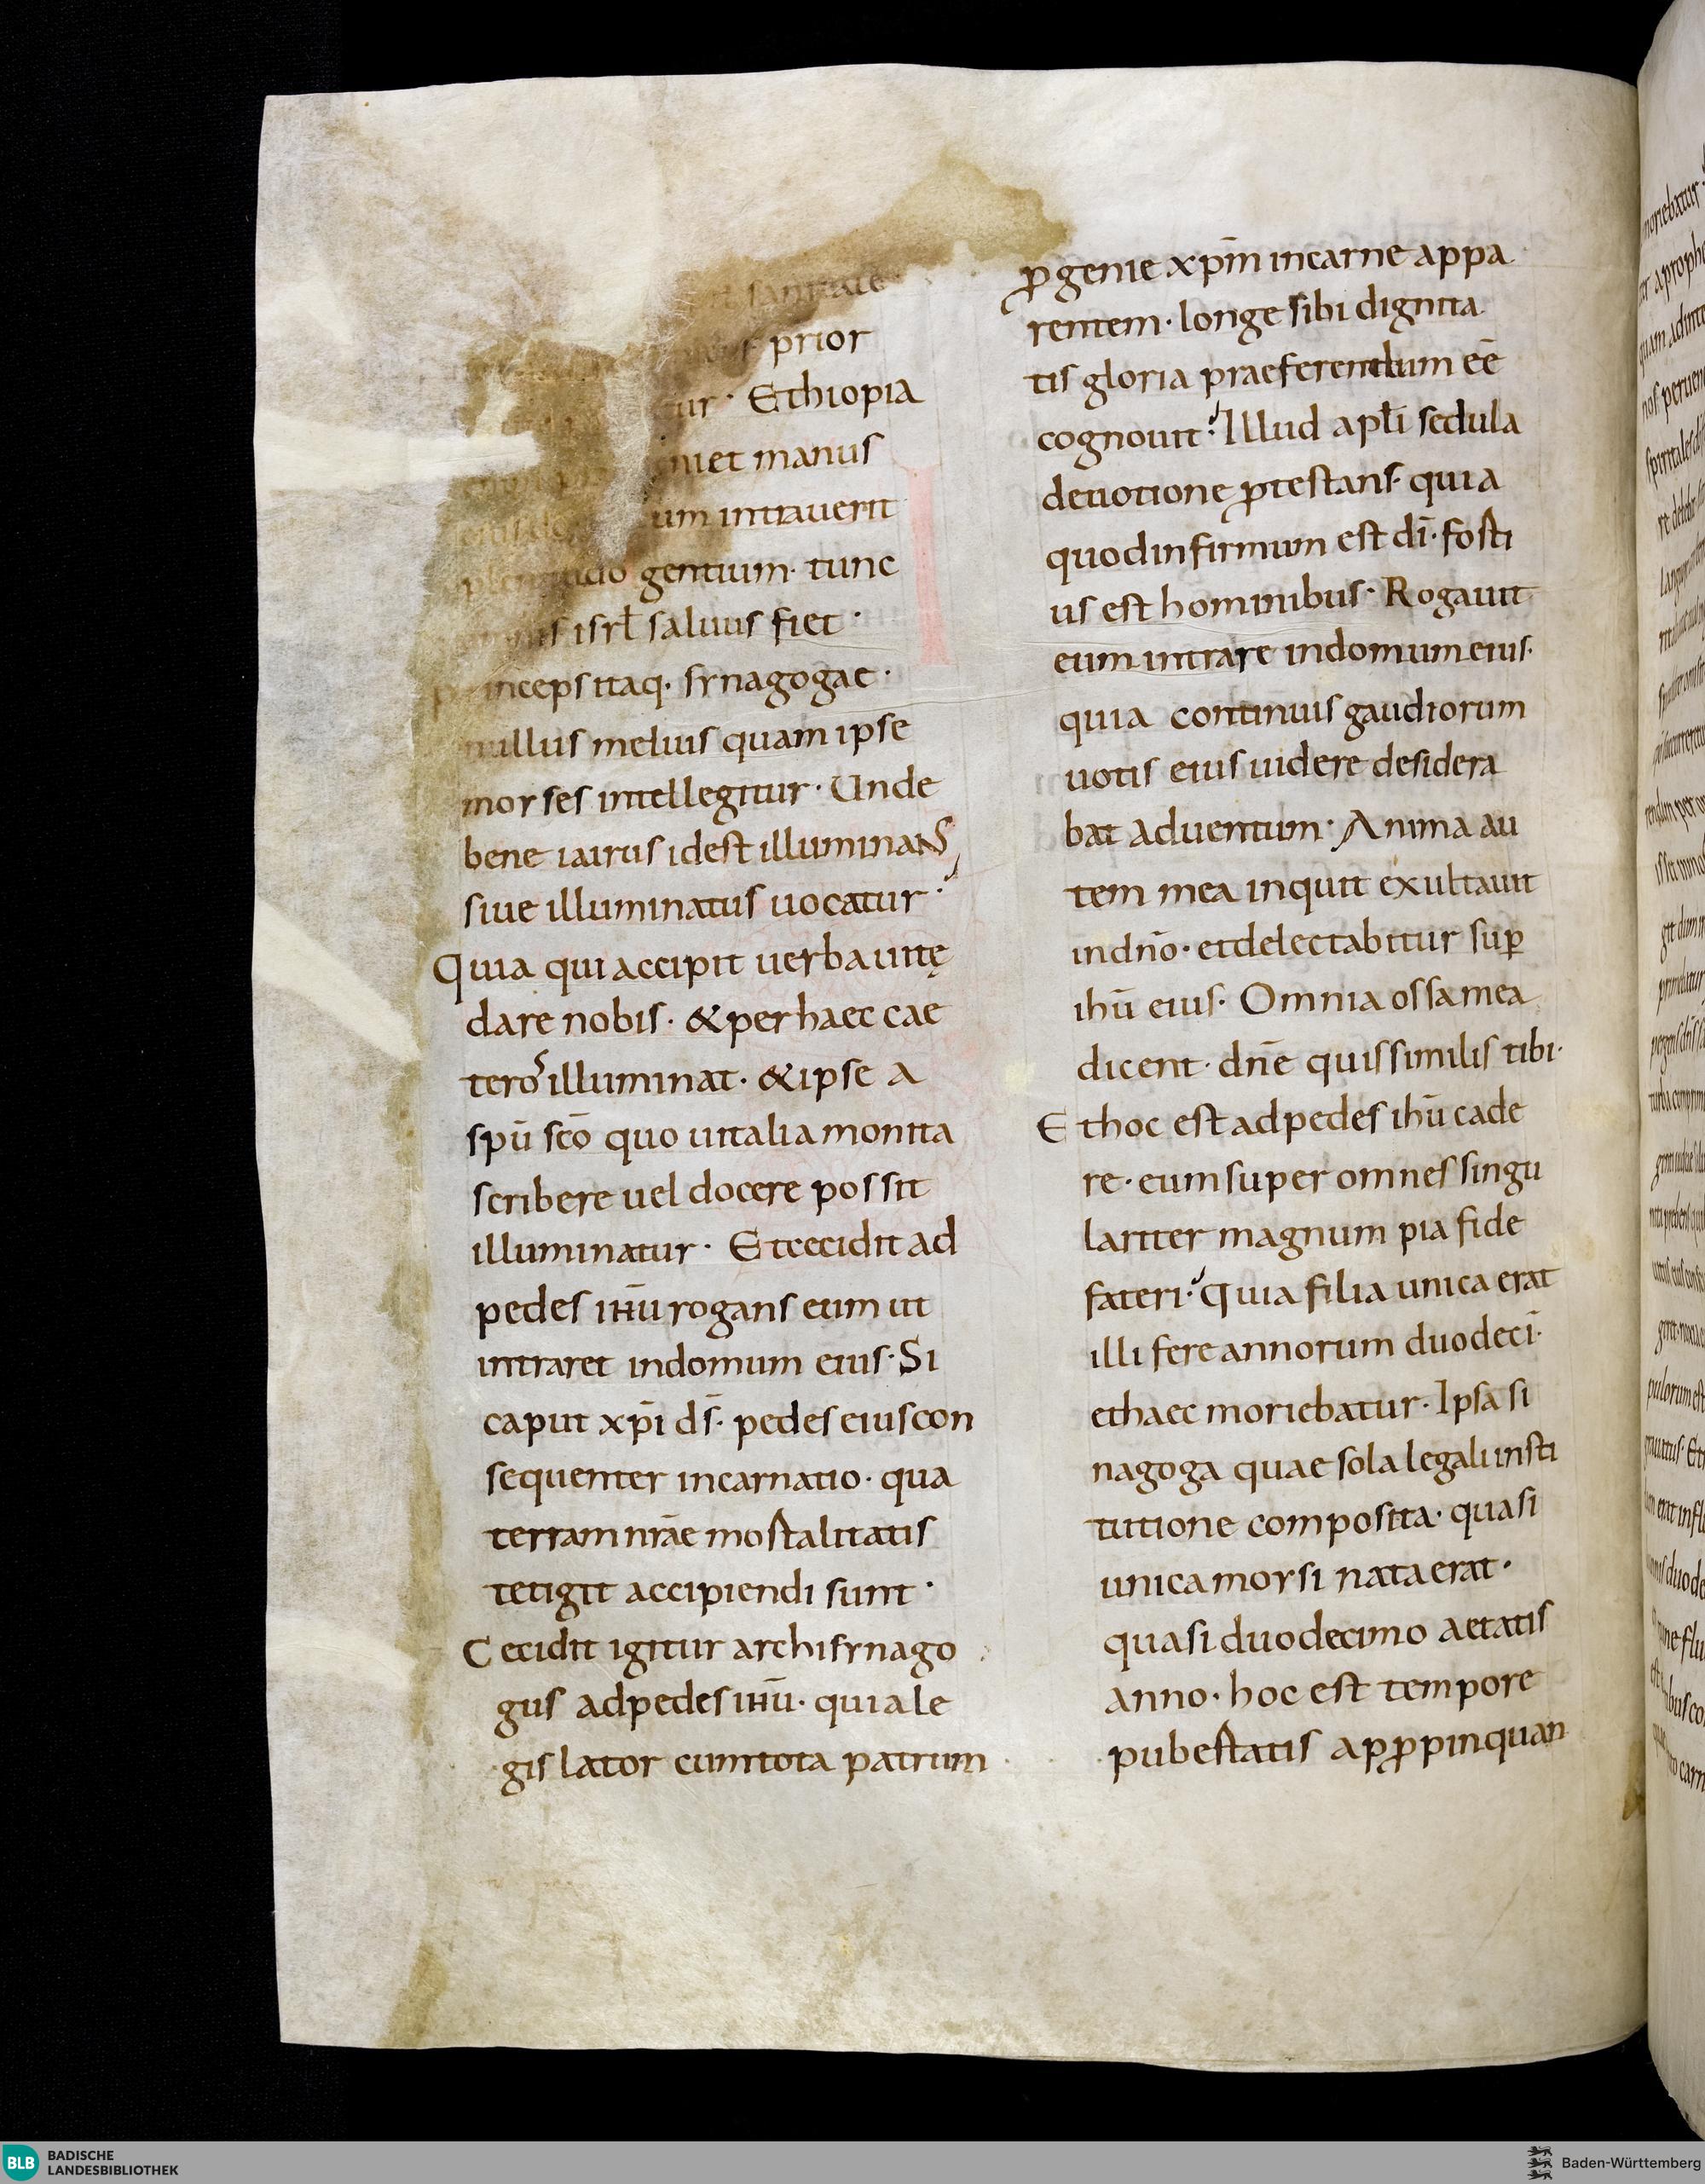 sanitate
prior
tur · Ethiopia
niet manus
um intrauerit
plenitudo gentium · tunc
isrł saluus fiet ·
princeps itaq· synagogae ·
nullus melius quam ipse
moyses intellegitur · Unde
bene iairus idest illuminaNS
siue illuminatus uocatur ·
Quia qui accipit uerba uitę
dare nobis · & per haec cae
teros illuminat · & ipse a
spū sc̄o quo uitalia monita
scribere uel docere possit
illuminatur · Et cecidit ad
pedes iħū rogans eum ut
intraret in domum eius · Si
caput xp̄i ds̄ · pedes eius con
sequenter incarnatio · qua
terram nr̄ae mostalitatis
tetigit accipiendi sunt ·
Cecidit igitur archisynago
gus ad pedes iħū · quia le
gis lator cum tota patrum
ꝓgenie xp̄m in carne appa
rentem · longe sibi dignita
tis gloria praeferendum eē
cognouit · Illud apłi sedula
deuotione ꝓtestans · quia
quod infirmum est dī · fosti
us est hominibus · Rogauit
eum intrare in domum eius ·
quia continuis gaudiorum
uotis eius uidere desidera
bat aduentum · Anima au
tem mea inquit exultauit
in dn̄o · et delectabitur suꝑ
ihū eius · Omnia ossa mea
dicent · dn̄e quis similis tibi ·
Et hoc est ad pedes ihū cade
re · eum super omnes singu
lariter magnum pia fide
fateri · Quia filia unica erat
illi fere annorum duodecī ·
et haec moriebatur · Ipsa si
nagoga quae sola legali insti
tutione composita · quasi
unica moysi nata erat ·
quasi duodecimo aetatis
anno · hoc est tempore
pubestatis apꝓpinquan
BLB BADISCHE
LANDESBIBLIOTHEK
Baden-Württemberg